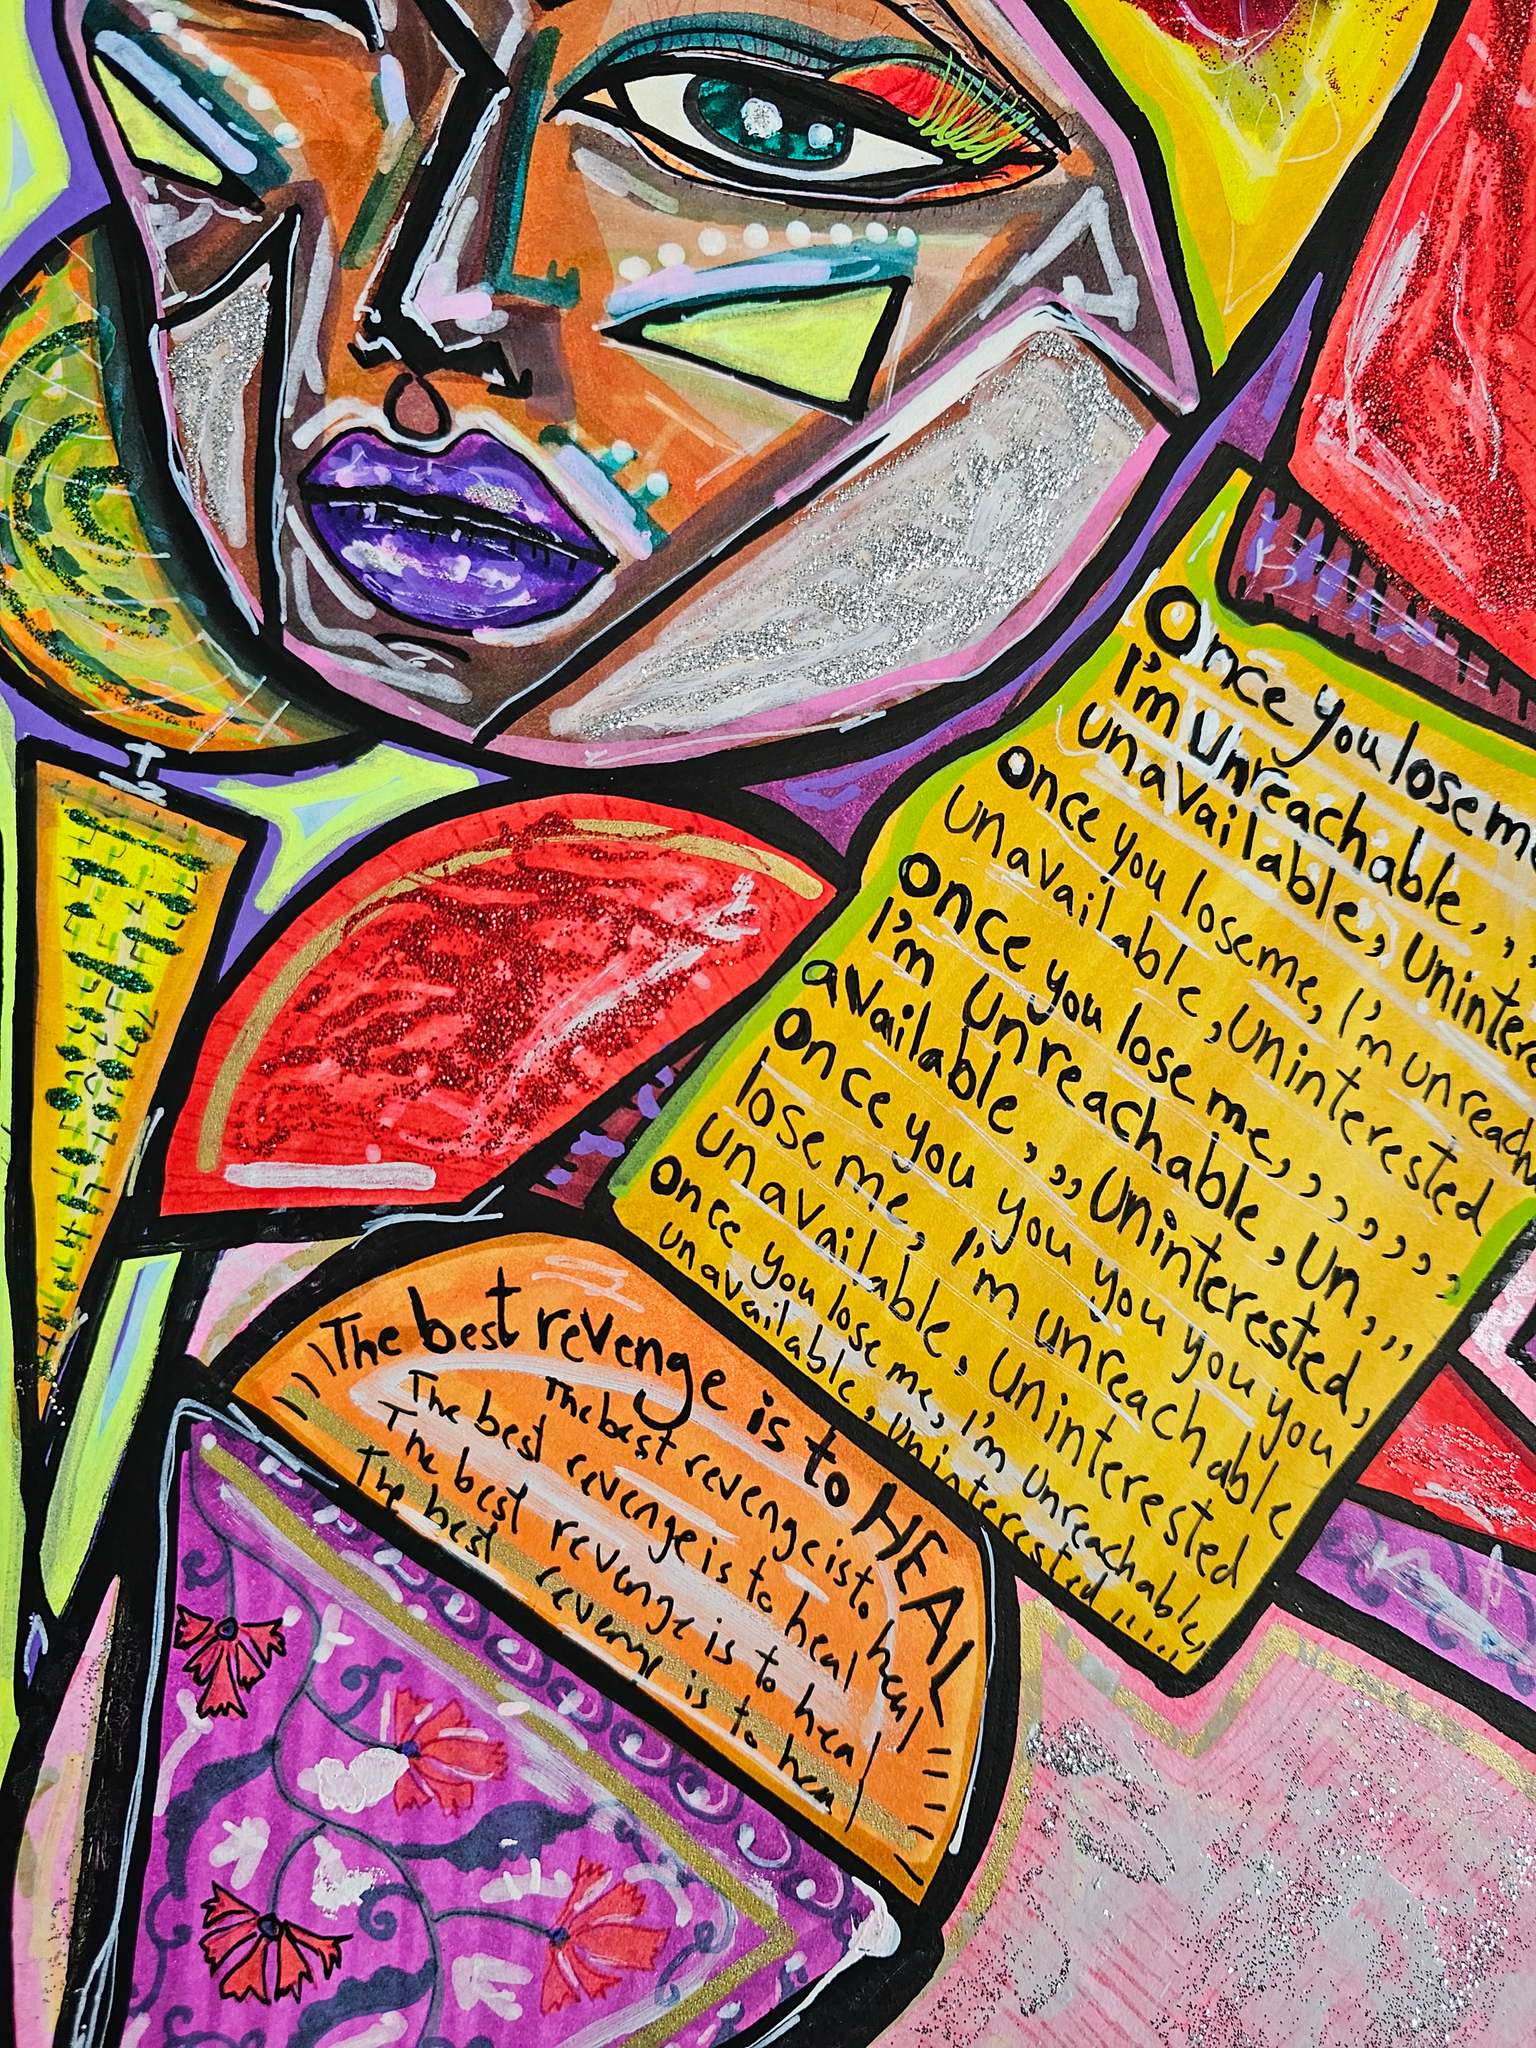 Once you lose me
I'm unreachable,,,
unavailable, unintere
once you lose me, I'm unreach
unavailable, uninterested
once you lose me,,,,,,
I'm unreachable, un,,,
available,,,, uninterested,
once you you you you you
lose me, I'm unreachable
unavailable, uninterested
once you lose me, I'm unreachable,
unavailable, uninterested
The best revenge is to HEAL
The best revenge is to heal
The best revenge is to heal
The best revenge is to hea
The best revenge is to hea